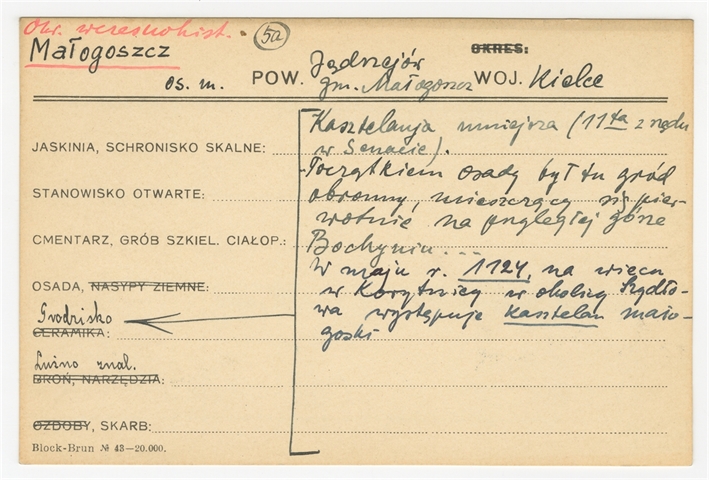 Okr. wczesnohist.
5a
Małogoszcz
os. m.
POW. Jędrzejów
gm. Małogoszcz
OKRES:
WOJ. Kielce
Kasztelanja mniejsza (11ta z rzędu
w Senacie).
JASKINIA, SCHRONISKO SKALNE:
Początkiem osady był tu gród
STANOWISKO OTWARTE:
obronny, mieszczący się pier-
wotnie na przyległej górze
CMENTARZ, GRÓB SZKIEL. CIAŁOP.:
Bochyniu...
W maju r. 1124, na wiecu
OSADA, NASYPY ZIEMNE:
w Korytnicy w okolicy Szydło-
Grodzisko
wa występuje kasztelan mało-
CERAMIKA:
goski
Luźno znal.
BROŃ, NARZĘDZIA:
OZDOBY, SKARB:
Block-Brun № 43—20.000.